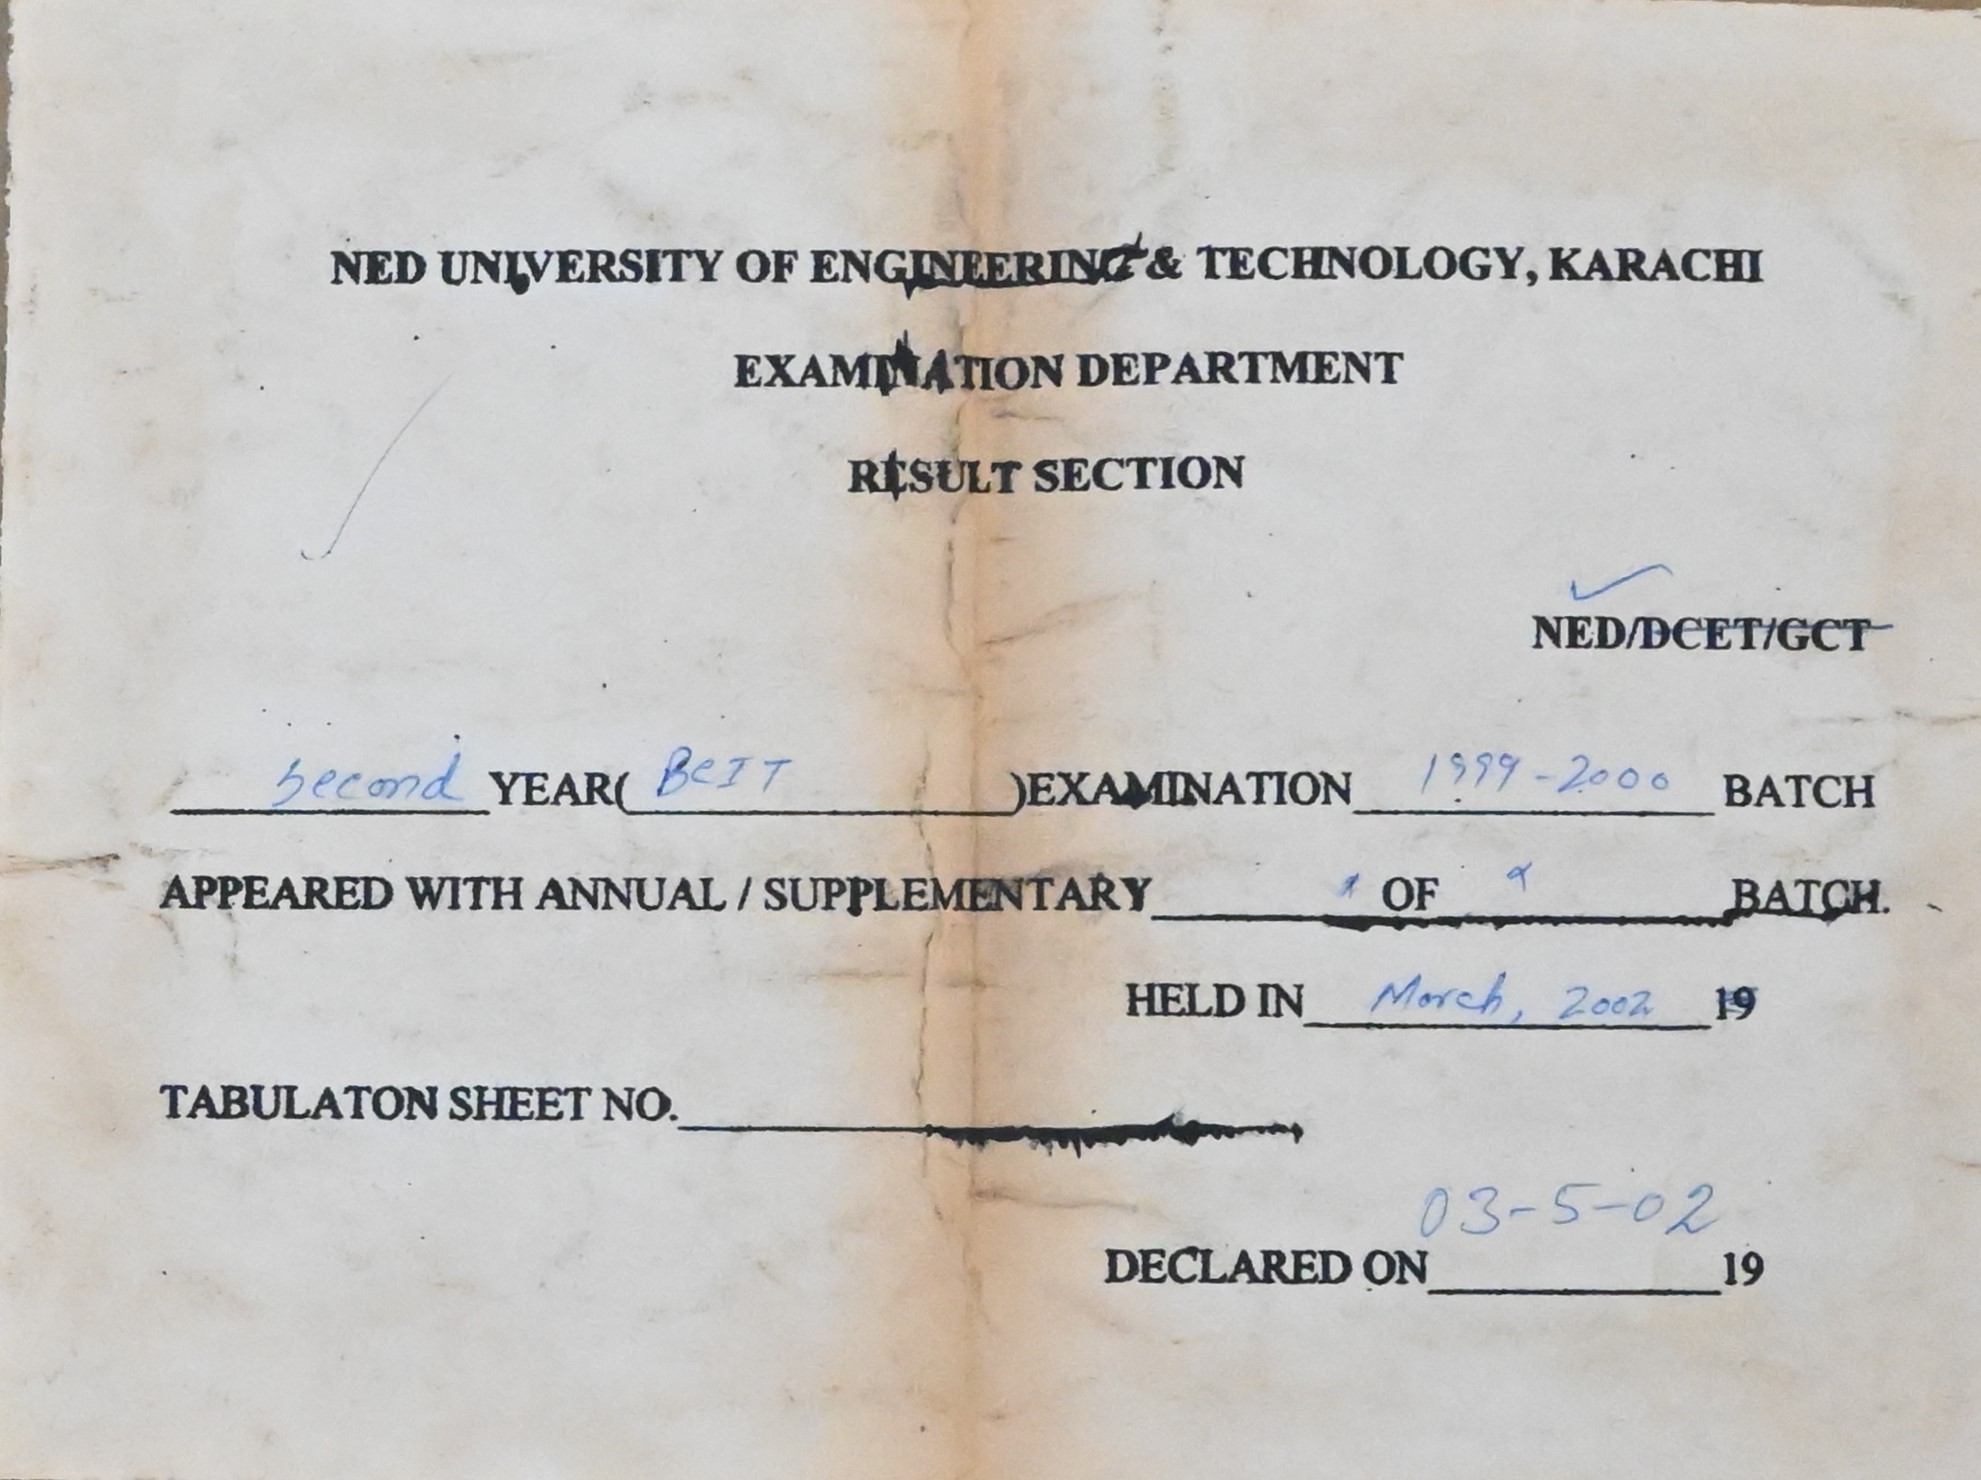 NED UNIVERSITY OF ENGINEERING & TECHNOLOGY, KARACHI
EXAMINATION DEPARTMENT
RESULT SECTION
NED/DCET/GCT
Second YEAR( BCIT )EXAMINATION 1999-2000 BATCH
APPEARED WITH ANNUAL / SUPPLEMENTARY OF BATCH.
HELD IN March, 2002 19
TABULATON SHEET NO.
03-5-02
DECLARED ON 19